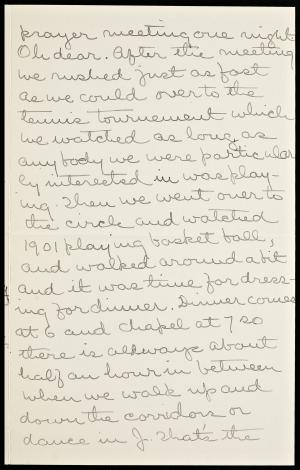 prayer meeting one night.
Oh dear. After the meeting
we rushed just as fast
as we could over to the
tennis tournement which
we watched as long as
anybody we were particular
ly interested in was play-
ing. Then we went over to
the circle and watched
1901 playing basket ball,
and walked around a bit
and it was time for dress-
ing for dinner. Dinner comes
at 6 and chapel at 7 so
there is always about
half an hour in between
when we walk up and
down the corridors or
dance in J. That's the